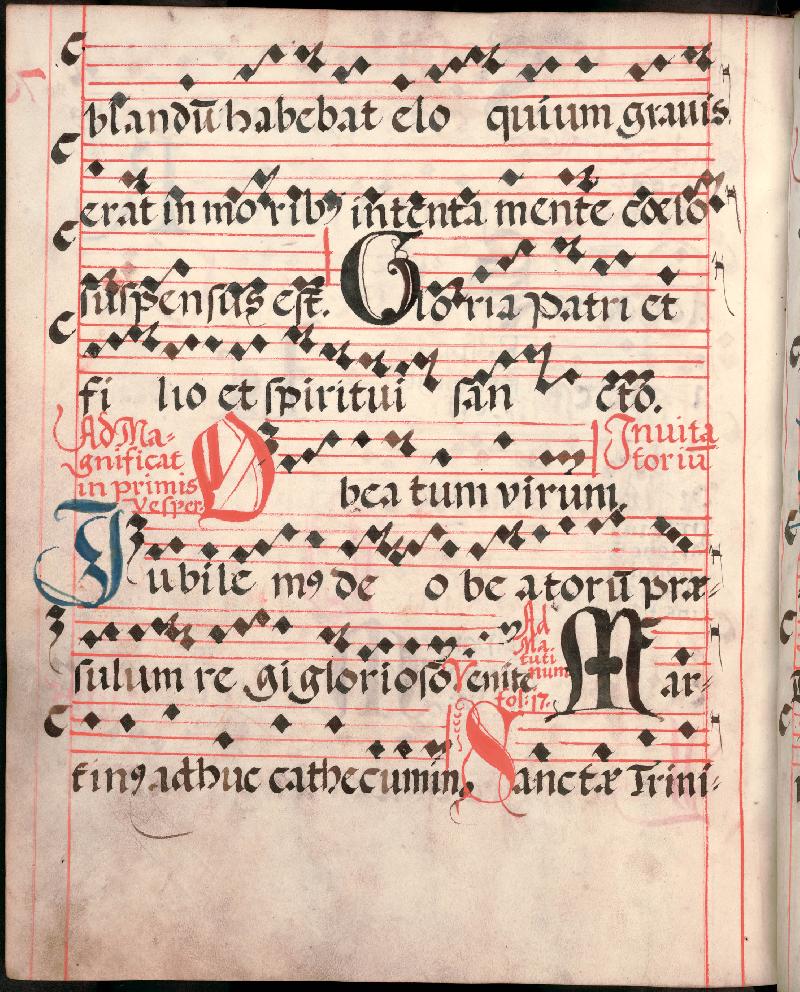 blandū habebat elo quium grauis
erat in moribꝰ intenta mente cœlo
suspensus est. Gloria Patri et
fi lio et spiritui san cto.
Ad Ma-
gnificat
in primis
Vesper.
O bea tum virum.
Inuita
toriū
Iubile mꝰ de o be atorū præ-
sulum re gi glorioso Venite.
Ad
Ma-
tuti
num
fol: 17.
Mar-
tinꝰ adhuc cathecumin,
Sanctæ Trini-